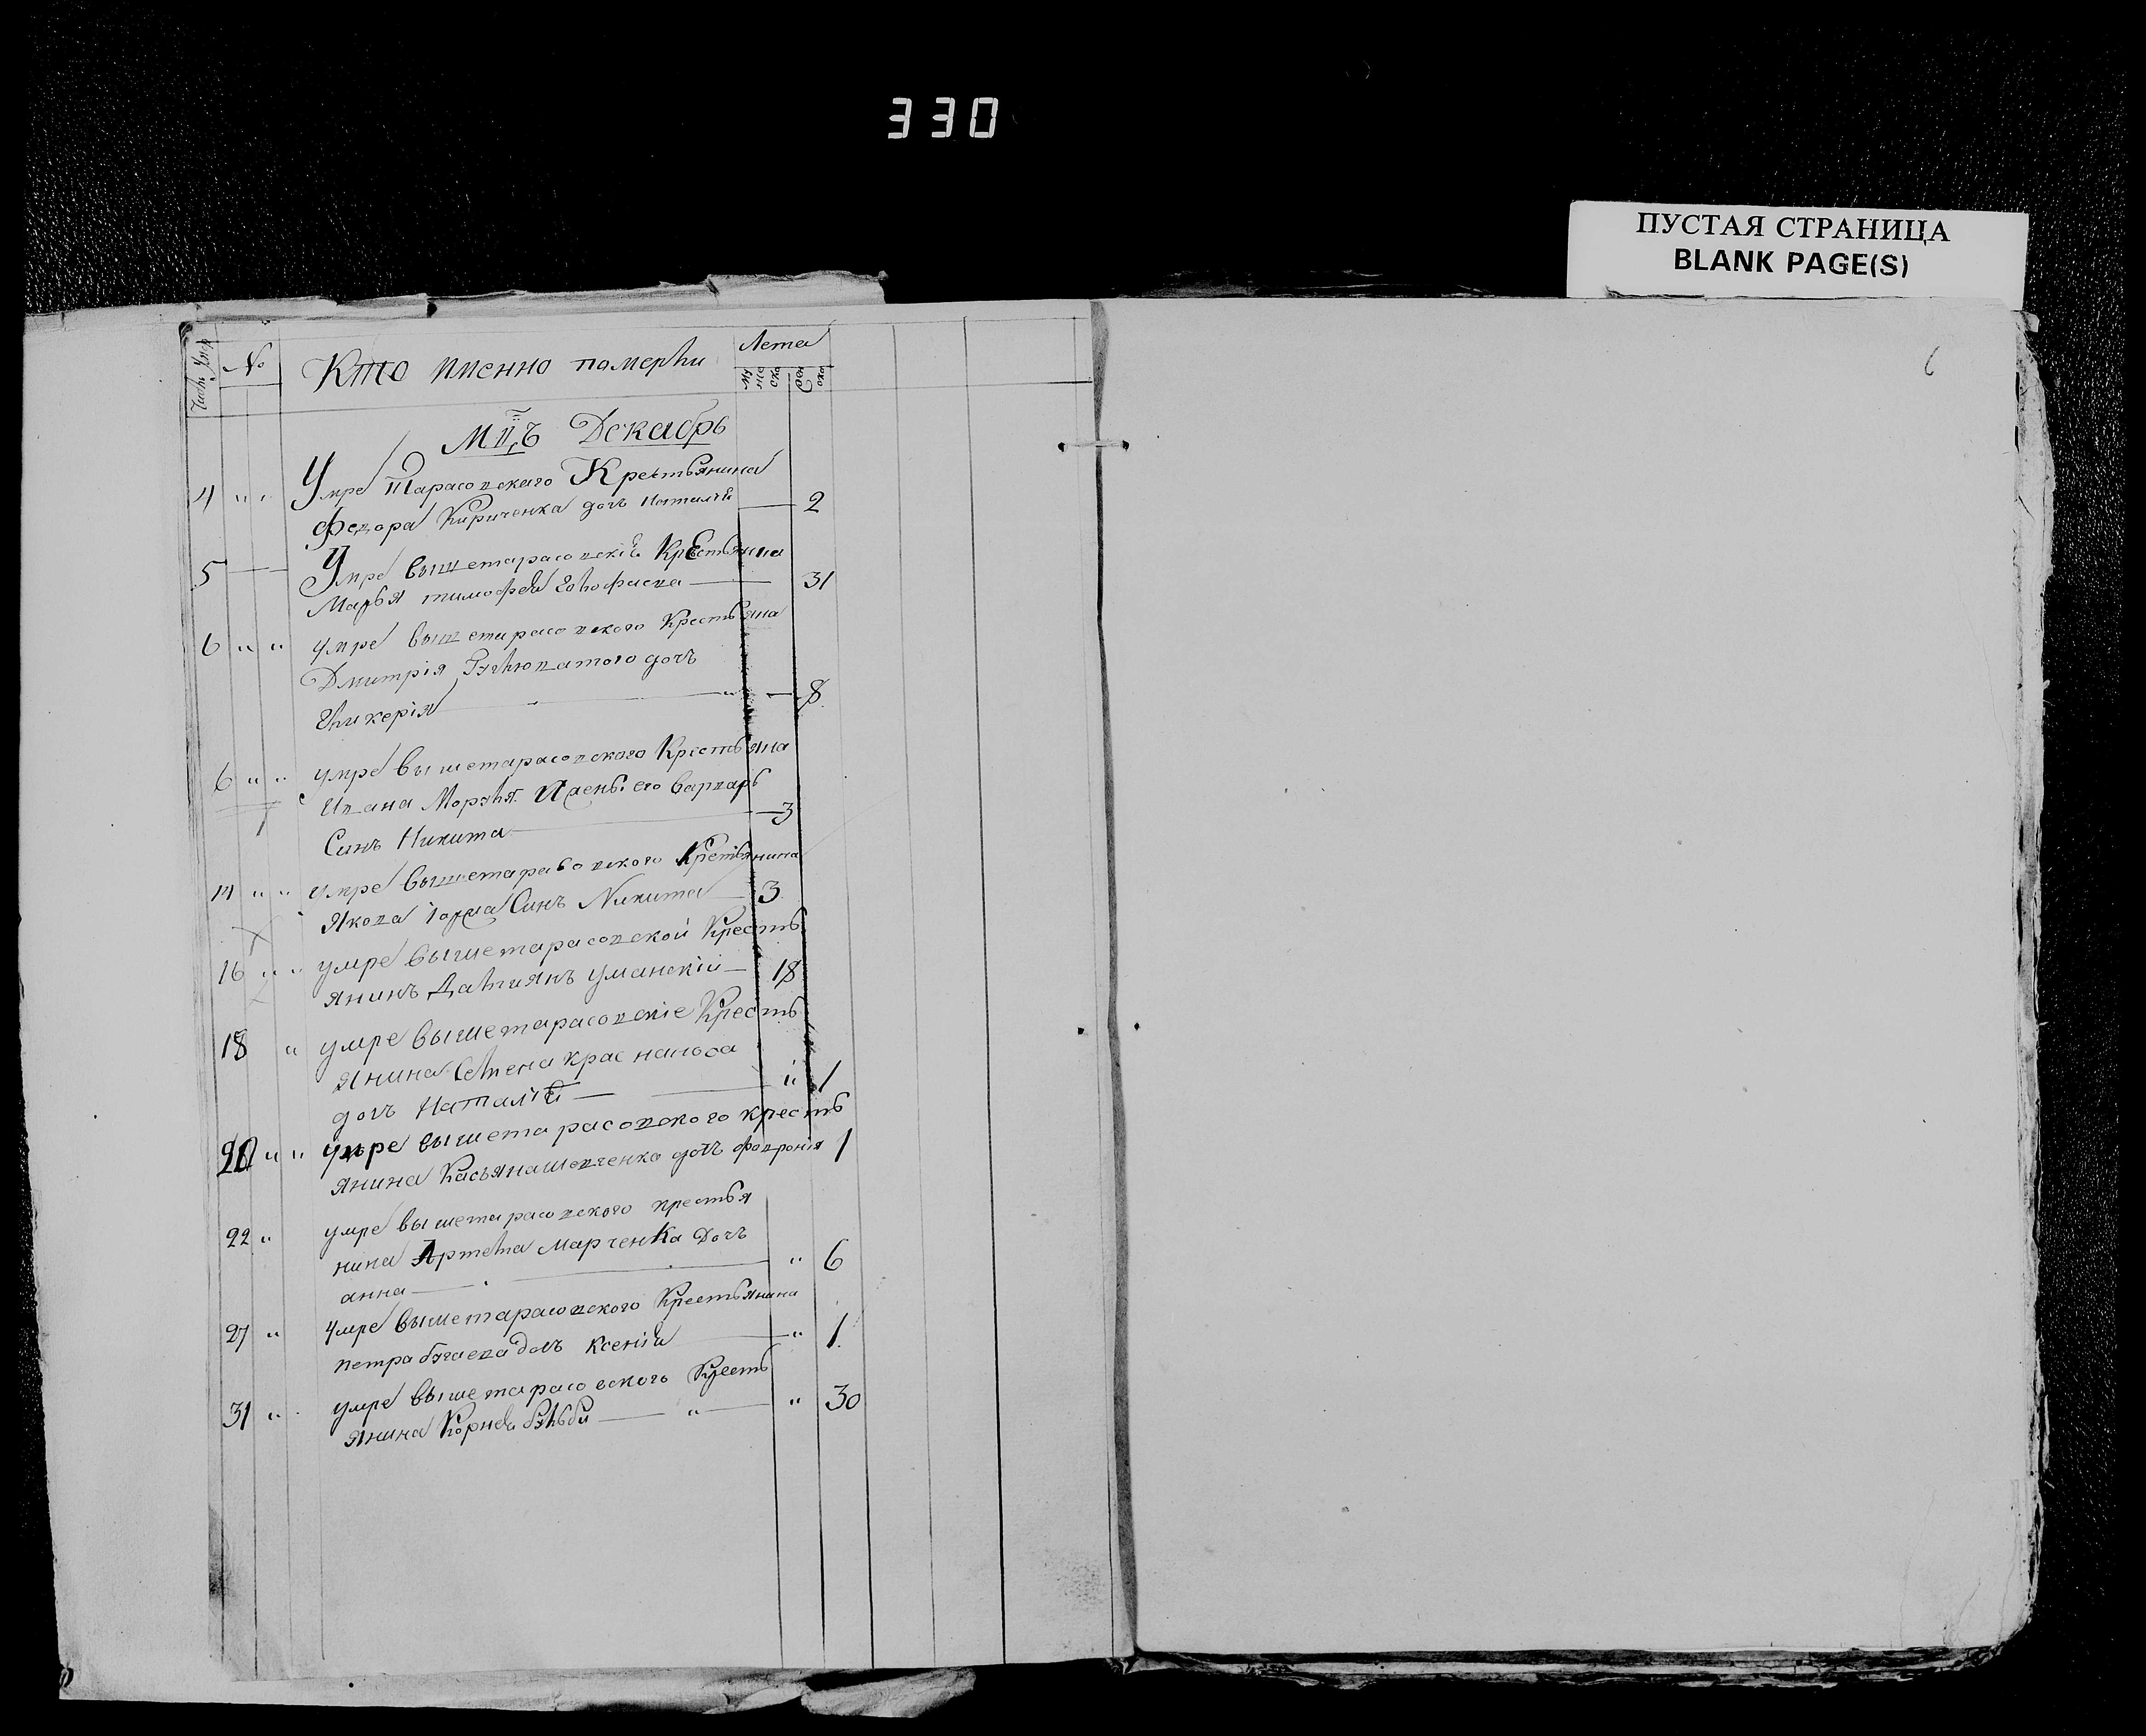 330
ПУСТАЯ СТРАНИЦА
BLANK PAGE(S)
6
№ Кто именно померли Лета
Мцъ Декабрь
4 " " Умре Тарасовскаго Крестьянина
Федора Кириченка дочь Наталія 2
5 Умре вышетарасовскій Крестьянина
Марья тимофей 31
6 " " умре вышетарасовского Крестьяна
Дмитрія дочъ
Гликерія " 8
6 " " умре вышетарасовского Крестьяна
Ивана его варвары
Синъ Никита 3
14 " " умре вышетарасовского Кретьянина
Якова Синъ Никита 3
16 " " умре вышетарасовской Кресть
янинъ Даміянъ уманскій 18
18 " умре вышетарасовскіе Кресть
янина Семена
дочъ Наталій " 1
" " умре вышетарасовского кресть
янина Касьяна шевченка дочъ февронія 1
22 " умре вышетарасовского крестья
нина Артема Марченка Дочъ
анна " 6
27 " Умре вышетарасовского Крестьянина
петра дочъ Ксенія " 1
31 " умре вышетарасовского Кресть
янина Корней " " 30